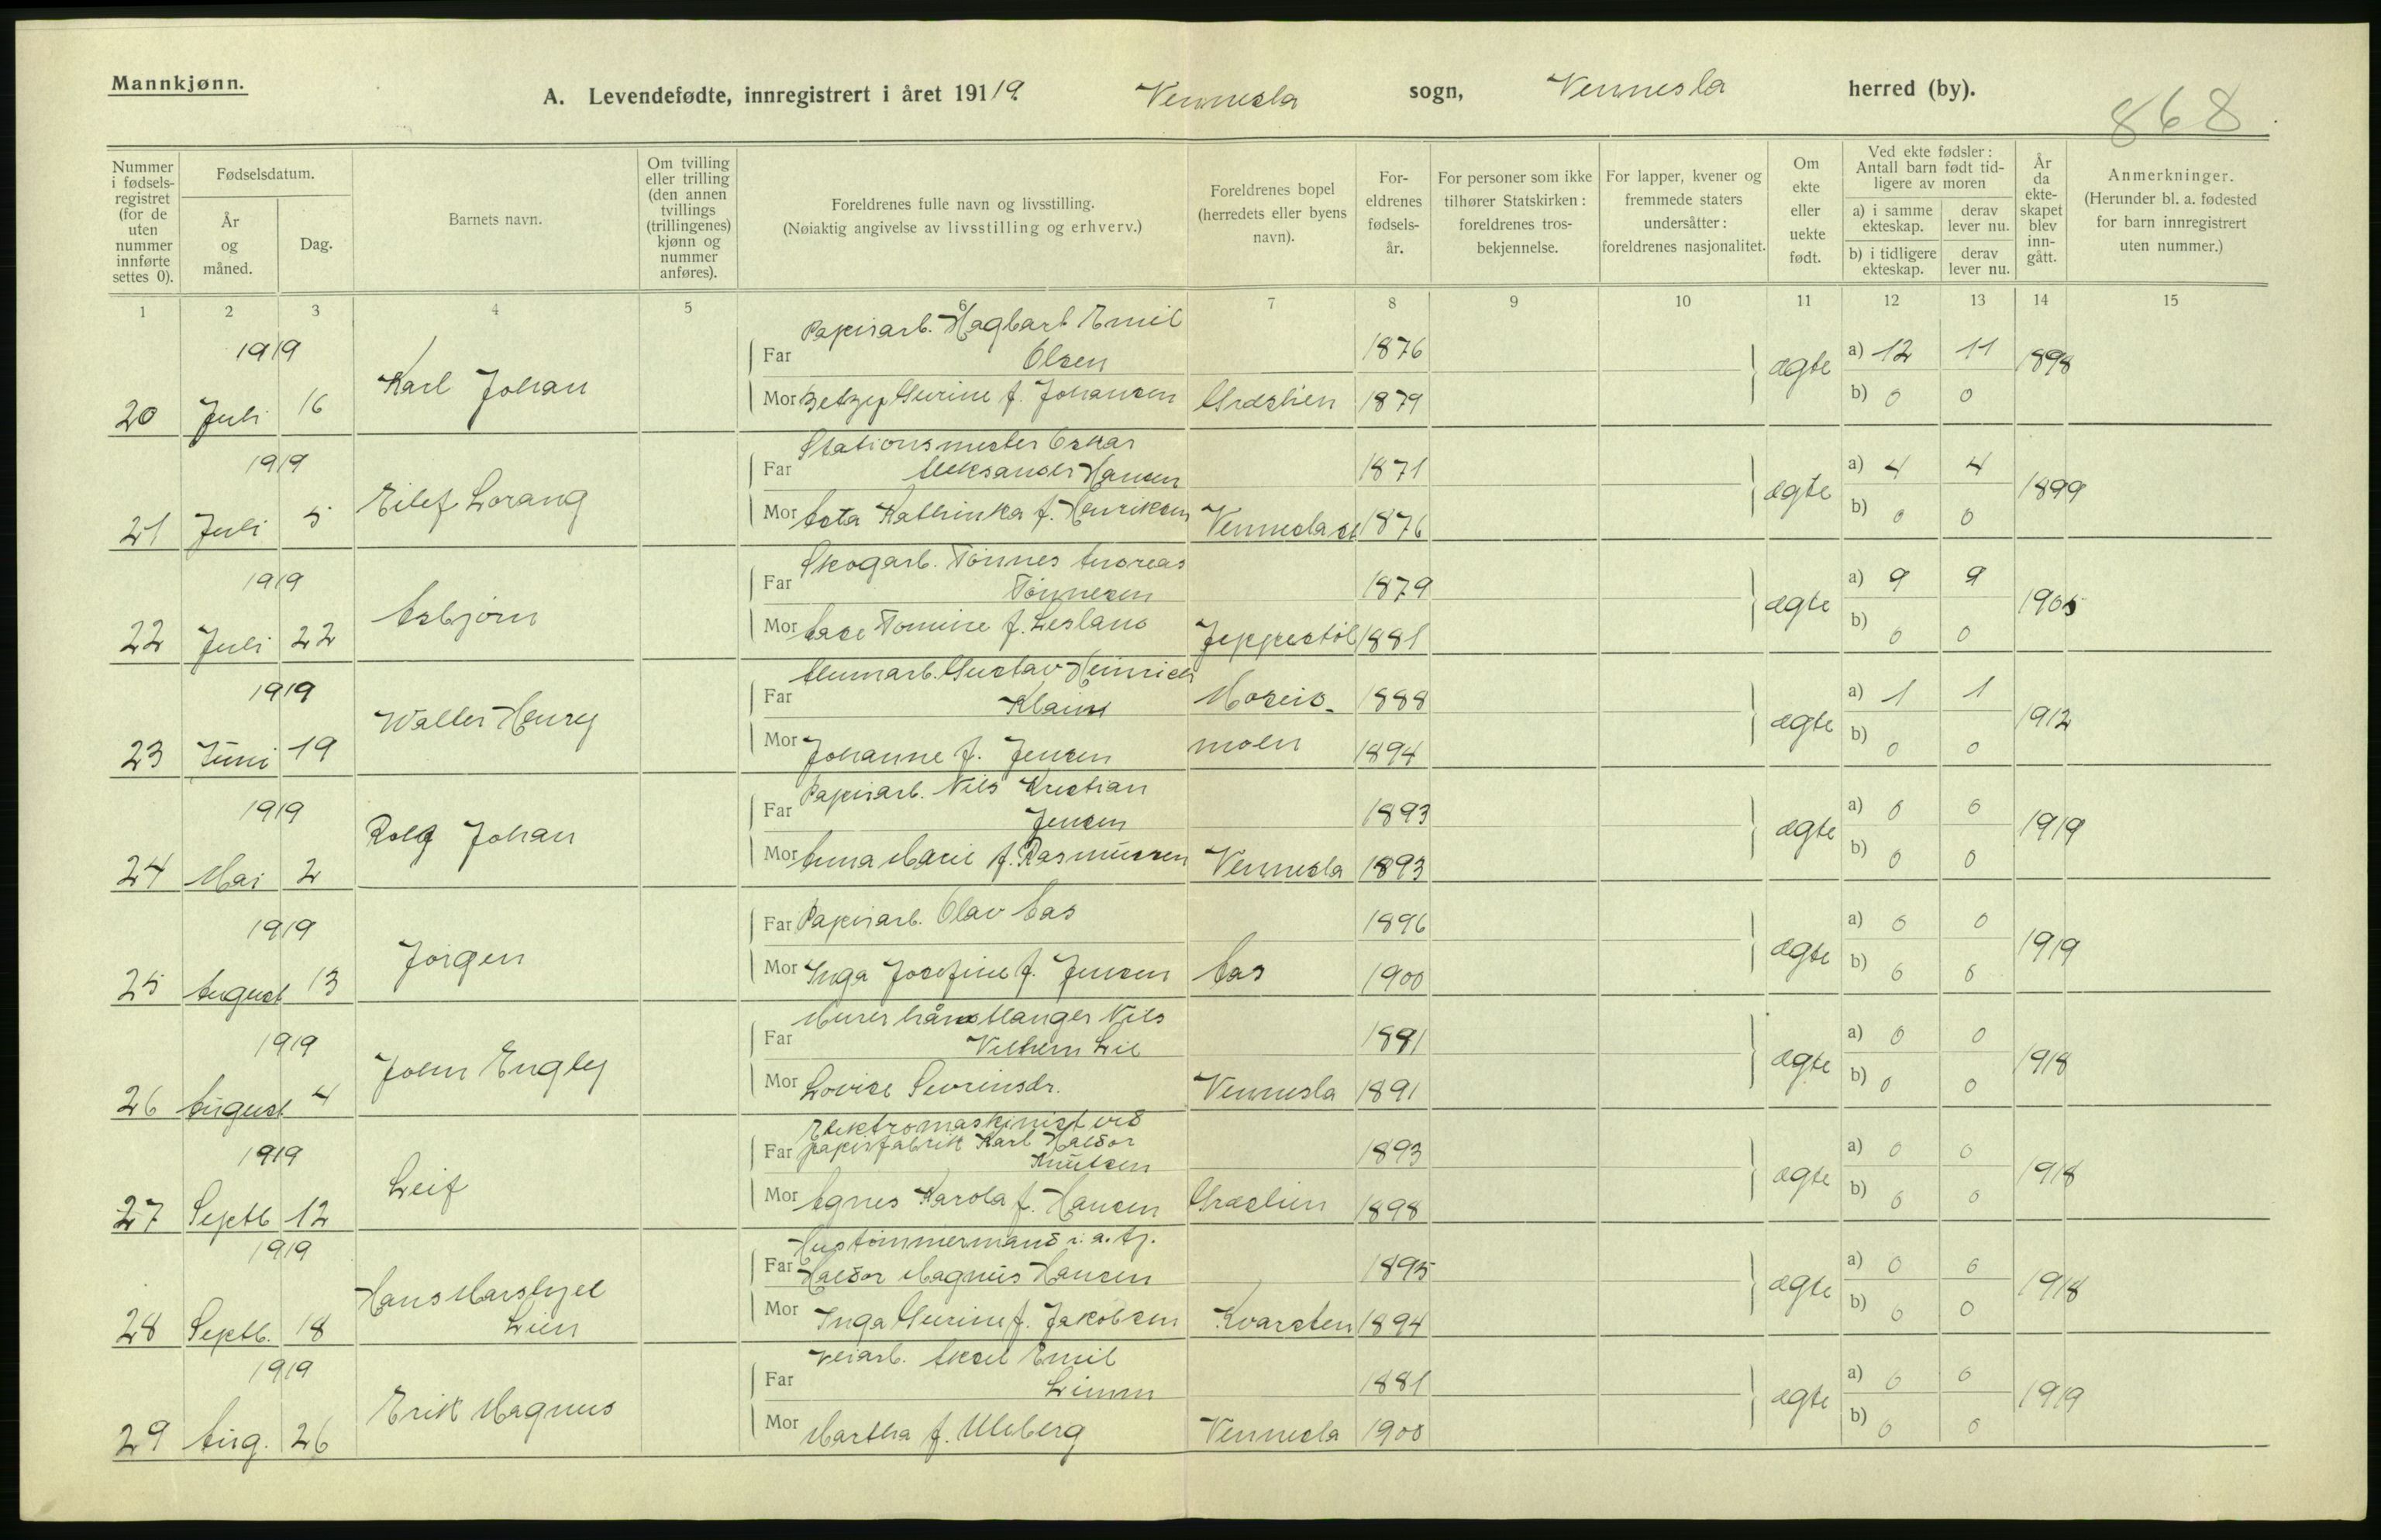 Mannkjønn.
A. Levendefødte, innregistrert i året 1919. Vennesla sogn, Vennesla herred (by).
868
Nummer i fødsels-registret (for de uten nummer innførte settes 0).
Fødselsdatum.
År og måned.
Dag.
Barnets navn.
Om tvilling eller trilling (den annen tvillings (trillingenes) kjønn og nummer anføres).
Foreldrenes fulle navn og livsstilling.
(Nøiaktig angivelse av livsstilling og erhverv.)
Foreldrenes bopel (herredets eller byens navn).
For-eldrenes fødsels-år.
For personer som ikke tilhører Statskirken: foreldrenes tros-bekjennelse.
For lapper, kvener og fremmede staters undersåtter: foreldrenes nasjonalitet.
Om ekte eller uekte født.
Ved ekte fødsler: Antall barn født tid-ligere av moren
a) i samme ekteskap.
derav lever nu.
b) i tidligere ekteskap.
derav lever nu.
År da ekte-skapet blev inn-gått.
Anmerkninger.
(Herunder bl. a. fødested for barn innregistrert uten nummer.)
1 2 3 4 5 6 7 8 9 10 11 12 13 14 15
1919
20 Juli 16 Karl Johan
Far Papirarb. Hagbart Emil
Olsen 1876
Mor Betzy Gurine f. Johansen Græslien 1879
ægte a) 12 11 1898
b) 0 0
1919
21 Juli 5 Eilef Lorang
Far Stationsmester Oskar
Aleksander Hansen 1871
Mor Asta Kathinka f. Henriksen Vennesla st 1876
ægte a) 4 4 1899
b) 0 0
1919
22 Juli 22 Asbjørn
Far Skogarb. Tønnes Andreas
Tønnesen 1879
Mor Aase Tomine f. Lesland Jeppestøl 1881
ægte a) 9 9 1905
b) 0 0
1919
23 Juni 19 Walter Henry
Far Alumarb. Gustav Heinrich
Moseid- 1888
Mor Johanne f. Jensen moen 1894
ægte a) 1 1 1912
b) 0 0
1919
24 Mai 2 Rolf Johan
Far Papirarb. Nils Kristian
Jensen 1893
Mor Anna Marie f. Rasmussen Vennesla 1893
ægte a) 0 0 1919
b) 0 0
1919
25 August 13 Jørgen
Far Papirarb. Olav Aas 1896
Mor Inga Josefine f. Jensen Aas 1900
ægte a) 0 0 1919
b) 0 0
1919
26 August 4 John Engly
Far Murerhåndtlanger Nils
Vilhelm Lie 1891
Mor Lovise Sevrinsdr. Vennesla 1891
ægte a) 0 0 1918
b) 0 0
1919
27 Septb 12 Leif
Elektromaskinist ved
Far papirfabrik Karl Haldor
Knutsen 1893
Mor Agnes Karola f. Hansen Græslien 1898
ægte a) 0 0 1918
b) 0 0
1919
28 Septb. 18 Hans Marshyel
Lien
Hustømmermand i. a. tj.
Far Haldor Magnus Hansen 1895
Mor Inga Gurine f. Jakobsen Kvarsten 1894
ægte a) 0 0 1918
b) 0 0
1919
29 Aug. 26 Erik Magnus
Far Veiarb. Aksel Emil
Limm 1881
Mor Martha f. Uleberg Vennesla 1900
ægte a) 0 0 1919
b) 0 0